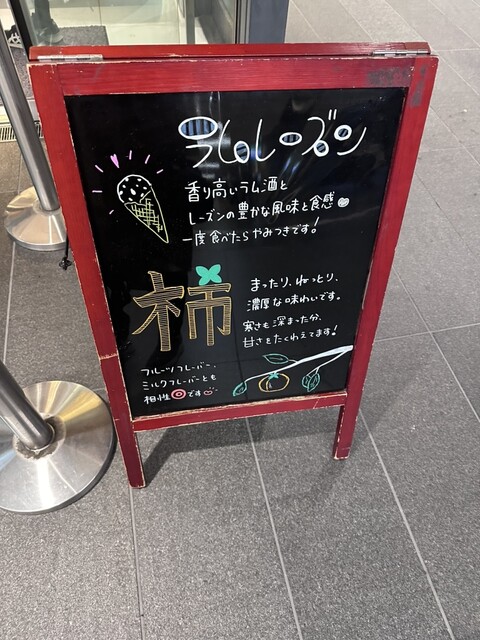 ラムレーズン
香り高いラム酒と
レーズンの豊かな風味と食感
一度食べたらやみつきです!
柿
まったり、ねっとり、
濃厚な味わいです。
寒さも深まった分、
甘さをたくわえてます!
フルーツフレーバー、
ミルクフレーバーとも
相性◎です